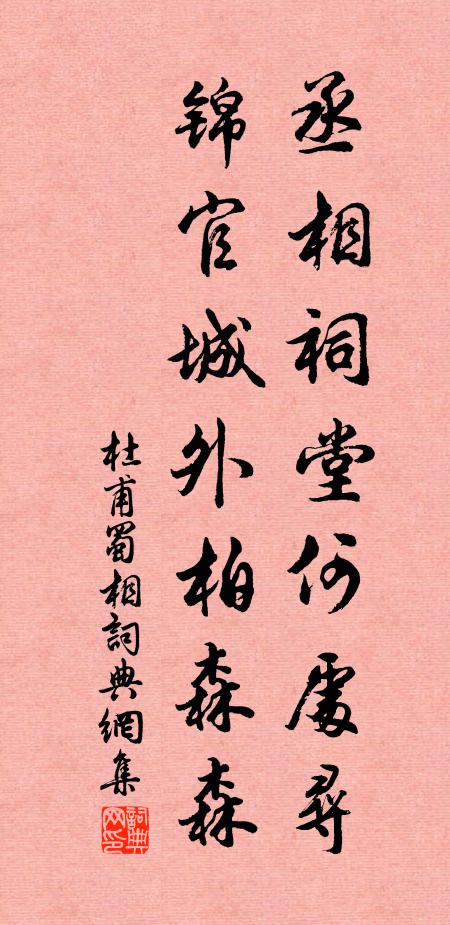 丞相祠堂何處尋
锦官城外柏森森
杜甫蜀相詞典網集
詞典網印